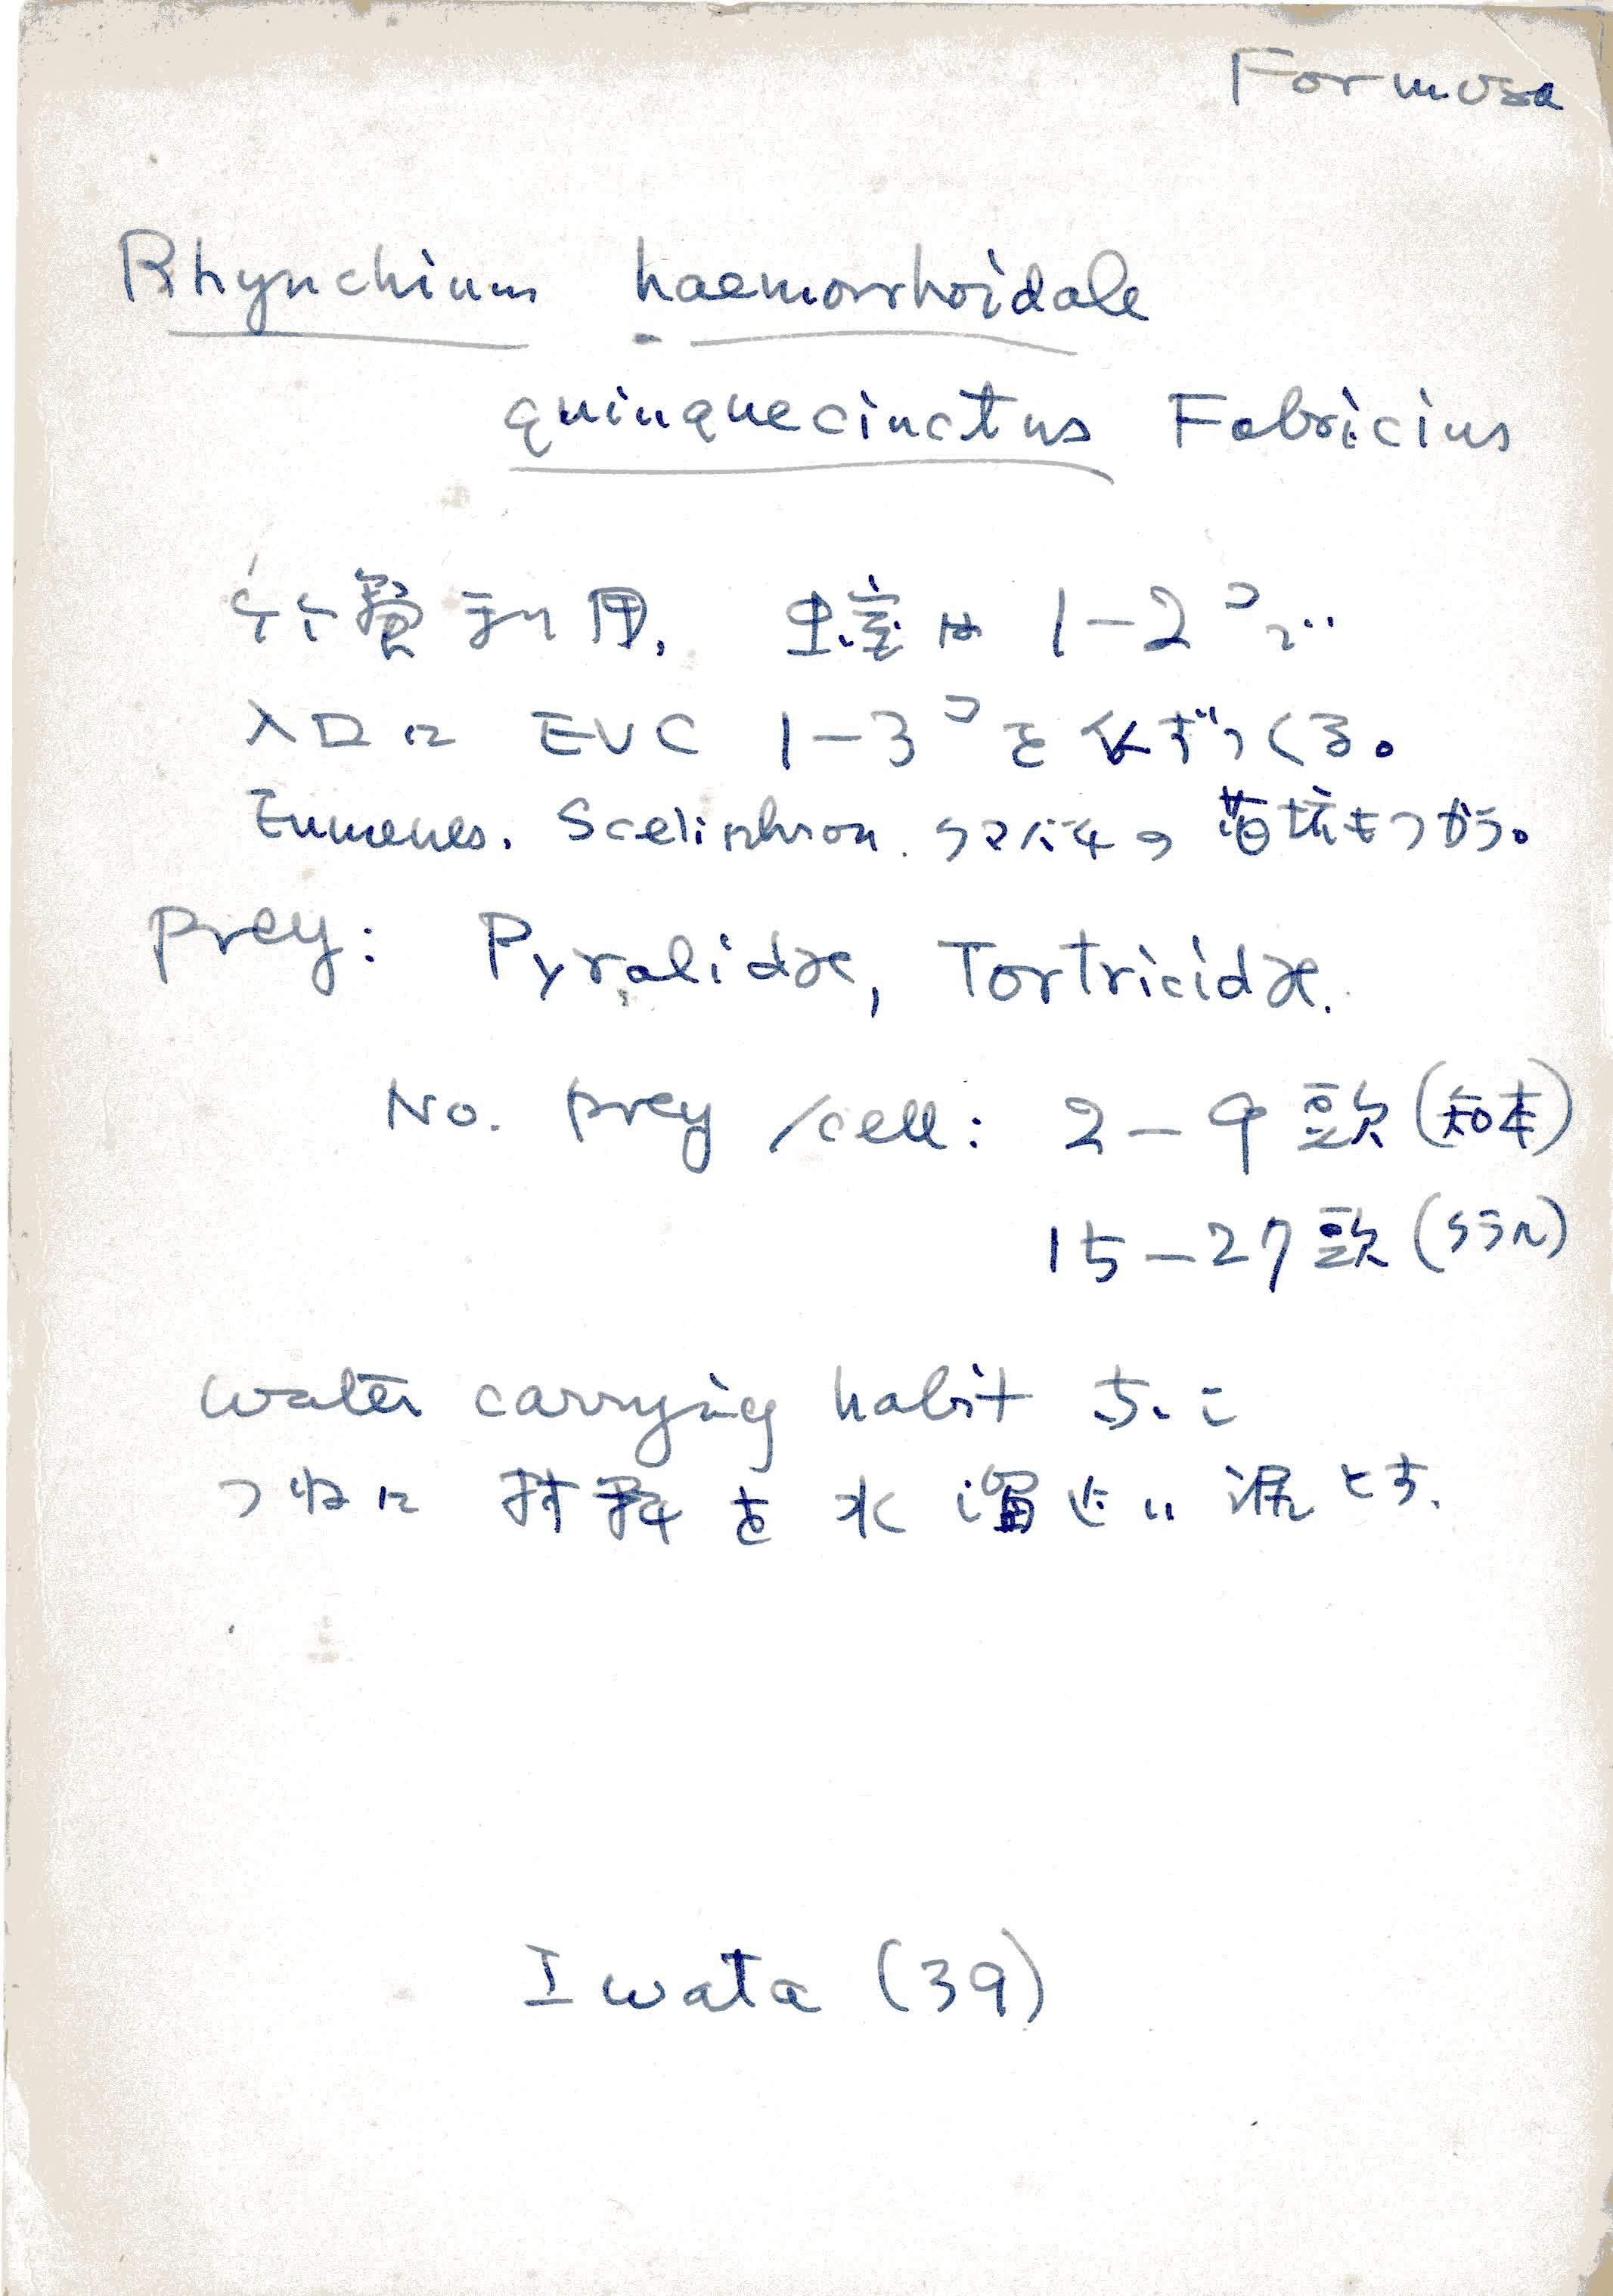 Formosa
Rhynchium haemorrhoidale
quinquecinctus Fabricius
竹筒利用. 虫室は 1-2コで
入口に EVC 1-3コを必ずつくる。
Eumenes. Sceliphron. クマバチの古坑もつかう。
Prey: Pyralidæ, Tortricidæ.
No. prey /cell: 2-9頭 (知本)
15-27頭 (ララル)
water carrying habit
つねに を水溜 近い 泥とる.
Iwata (39)